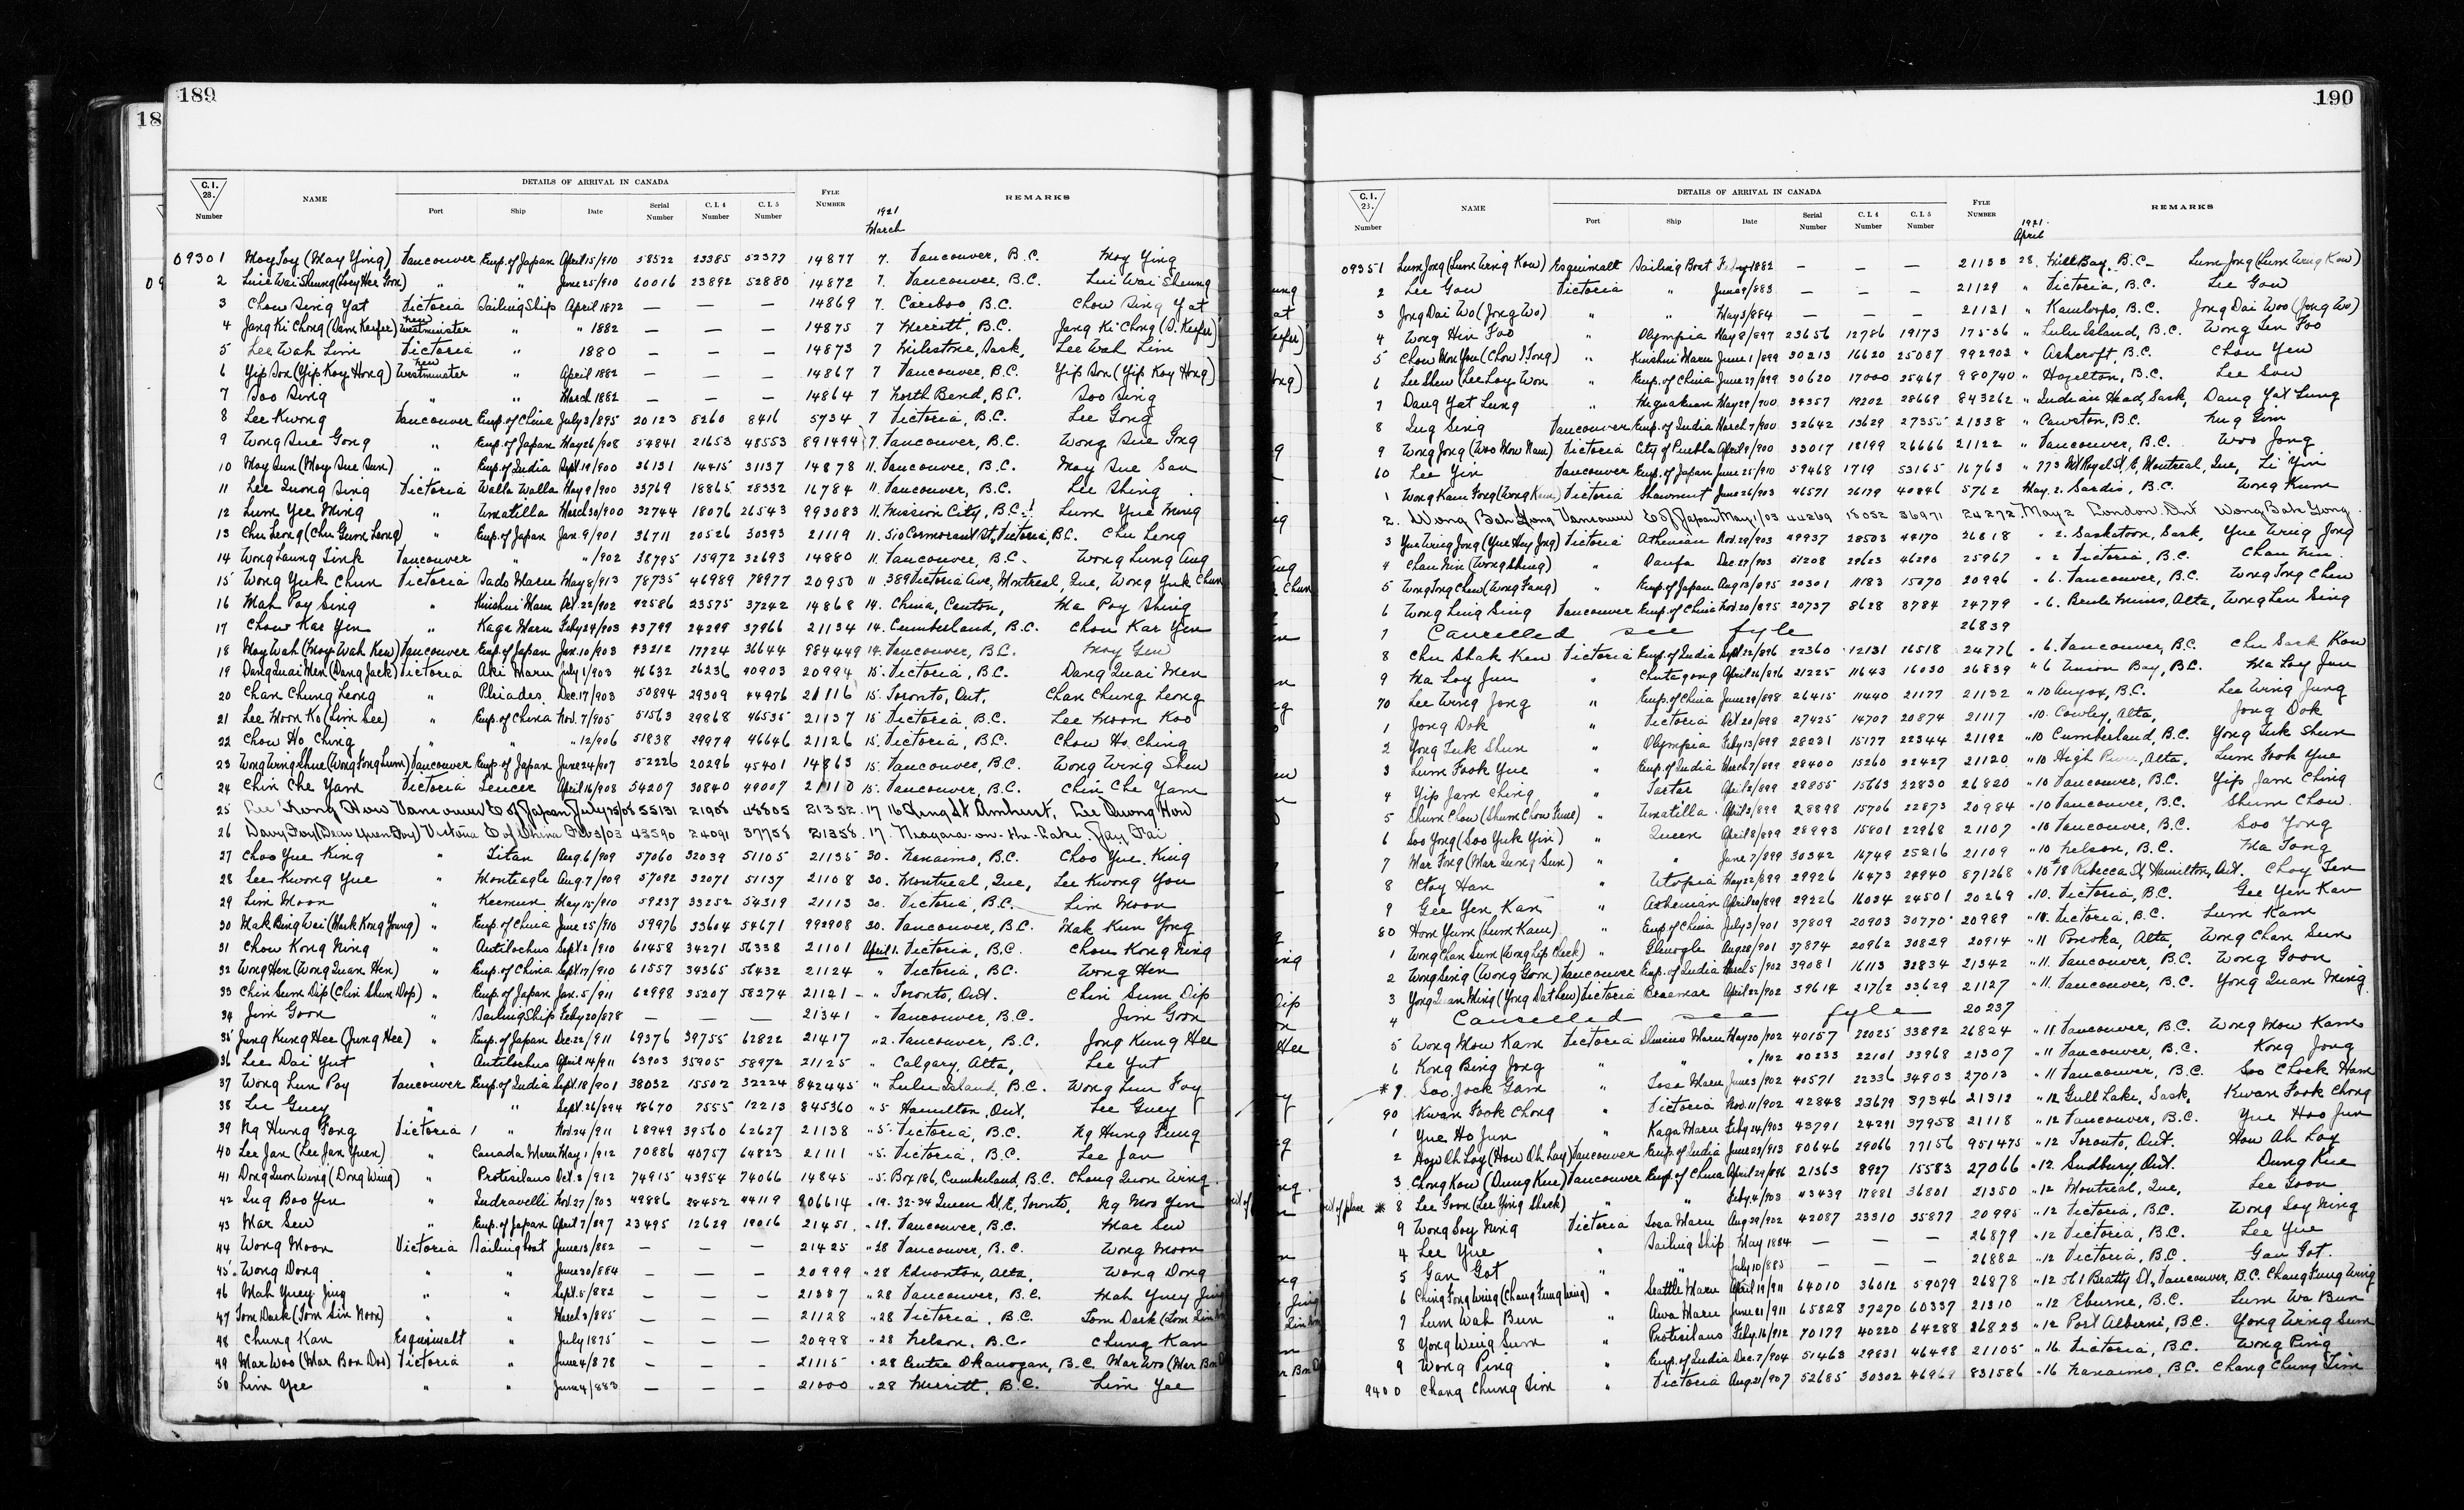 189
18
C.I. 28. Number NAME DETAILS OF ARRIVAL IN CANADA Port Ship Date Serial Number C.I.4 Number C.I.5 Number FYLE NUMBER REMARKS
1921 March
09301 Moy Toy (May Ying) Vancouver Emp. of Japan April 15/910 58522 23385 52377 14877 7. Vancouver, B.C. Moy Ying
2 Luie Wai Sheung (Loey Hee Goon) " " June 25/910 60016 23892 52880 14872 7. Vancouver, B.C. Lui Wai Sheung
3 Chow Sing Yat Victoria Sailing Ship April 1872 — — — 14869 7. Cariboo, B.C. Chow Sing Yat
4 Jang Ki Chong (Sam Keefer) New Westminster " " 1882 — — — 14875 7 Merritt, B.C. Jang Ki Chong (S. Keefer)
5 Lee Wah Lim Victoria " 1880 — — — 14873 7 Milestone, Sask, Lee Wah Lim
6 Yip Son (Yip Koy Hong) New Westminster " April 1882 — — — 14867 7 Vancouver, B.C. Yip Son (Yip Koy Hong)
7 Soo Sing " " March 1882 — — — 14864 7 North Bend, B.C. Soo Sing
8 Lee Kwong Vancouver Emp. of China July 3/895 20123 8260 8416 5734 7 Victoria, B.C. Lee Gong
9 Wong Sue Gong " Emp. of Japan May 26/908 54841 21653 48553 891494 7. Vancouver, B.C. Wong Sue Gong
10 Moy Sun (Moy Sue Sun) " Emp. of India Sept. 19/900 36131 14415 31137 14878 11. Vancouver, B.C. Moy Sue San
11 Lee Quong Sing Victoria Walla Walla May 9/900 33769 18865 28332 16784 11. Vancouver, B.C. Lee Shing
12 Lum Yee Ming " Umatilla March 30/900 32744 18076 26543 993083 11. Mission City, B.C. Lum Yue Ming
13 Chu Leong (Chu Gum Leong) " Emp. of Japan Jan. 9/901 36711 20526 30393 21119 11. 510 Cormorant St, Victoria, B.C. Chu Leng
14 Wong Laung Tink Vancouver " " /902 38795 15972 32693 14880 11. Vancouver, B.C. Wong Lung Aug
15 Wong Yuk Chun Victoria Sado Maru May 8/913 78735 46989 78977 20950 11. 389 Victoria Ave, Montreal, Que, Wong Yuk Chun
16 Mah Poy Sing " Kinshui Maru Oct. 22/902 42586 23575 37242 14868 14. China, Canton, Ma Poy Shing
17 Chow Kar Yen " Kaga Maru Feby 24/903 43799 24299 37966 21134 14. Cumberland, B.C. Chow Kar Yen
18 Moy Wah (Moy Wah Kew) Vancouver Emp. of Japan Jan. 10/903 43212 17724 36644 984449 14. Vancouver, B.C. Moy Gew
19 Dang Quai Men (Dang Jack) Victoria Aki Maru July 1/903 46632 26236 40903 20994 15. Victoria, B.C. Dang Quai Men
20 Chan Chung Leong " Pleiades Dec. 17/903 50894 29309 44976 21116 15. Toronto, Ont. Chan Chung Leong
21 Lee Moon Ko (Lim See) " Emp. of China Nov. 7/905 51563 29868 46535 21137 15 Victoria, B.C. Lee Moon Koo
22 Chow Ho Ching " " " 12/906 51838 29979 46646 21126 15. Victoria, B.C. Chow Ho Ching
23 Wong Wing Shue (Wong Fong Lum) Vancouver Emp. of Japan June 24/907 52226 20296 45401 14863 15. Vancouver, B.C. Wong Wing Shew
24 Chin Che Yam Victoria Teucer April 16/908 54207 30840 49007 21110 15. Vancouver, B.C. Chin Che Yam
25 Lee Quong How Vancouver E of Japan July 15/08 55131 21905 48805 21352 17 16 King St Amherst. Lee Quong How
26 Davy Foy (Dean Yuen Foy) Victoria E of China Feb 3/03 43590 24091 37758 21358. 17. Niagara-on-the-Lake. Jay Fai
27 Choo Yue King " Titan Aug. 6/909 57060 32039 51105 21135 30. Nanaimo, B.C. Choo Yue King
28 Lee Kwong Yue " Monteagle Aug. 7/909 57092 32071 51137 21108 30. Montreal, Que, Lee Kwong You
29 Lim Moon " Keemun May 15/910 59237 33252 54319 21113 30. Victoria, B.C. Lim Moon
30 Mak Bing Wai (Mark Kong Young) " Emp. of China June 25/910 59976 33604 54671 992908 30. Vancouver, B.C. Mak Kun Yong
31 Chow Kong Ning " Antilochus Sept. 2/910 61458 34271 56338 21101 April 1. Victoria, B.C. Chow Kong Ning
32 Wong Hen (Wong Quan Hen) " Emp. of China Sept. 17/910 61557 34365 56432 21124 " Victoria, B.C. Wong Hen
33 Chin Sum Dip (Chin Shum Dop) " Emp. of Japan Jan. 5/911 62998 35207 58274 21121 " Toronto, Ont. Chin Sum Dip
34 Jim Goon " Sailing Ship Feby 20/878 — — — 21341 " Vancouver, B.C. Jim Goon
35 Jung Kung Hee (Jung Hee) " Emp. of Japan Dec. 22/911 69376 39755 62822 21417 " 2. Vancouver, B.C. Jong Kung Hee
36 Lee Dai Yut " Antilochus April 14/911 63903 35905 58972 21125 " Calgary, Alta, Lee Yut
37 Wong Lun Poy Vancouver Emp. of India Sept. 18/901 38032 15502 32224 842445 " Lulu Island, B.C. Wong Lun Foy
38 Lee Guey " " Sept. 26/894 18670 7555 12213 845360 " 5 Hamilton, Ont, Lee Guey
39 Ng Hung Fong Victoria " Nov. 24/911 68949 39560 62627 21138 " 5. Victoria, B.C. Ng Hung Fung
40 Lee Jan (Lee Jan Yuen) " Canada Maru May 1/912 70886 40757 64823 21111 " 5. Victoria, B.C. Lee Jan
41 Dong Quon Wing (Dong Wing) " Protesilaus Oct. 8/912 74915 43954 74066 14845 " 5. Box 186, Cumberland, B.C. Chong Quon Wing
42 Lug Boo Yen " Indravelli Nov. 27/903 49886 28452 44119 806614 " 19. 32-34 Queen St. E, Toronto, Ng Moo Yen
43 Mar Sew " Emp. of Japan April 7/897 23495 12629 19016 21451 " 19. Vancouver, B.C. Mar Sew
44 Wong Moon Victoria Sailing boat June 13/882 — — — 21425 " 28 Vancouver, B.C. Wong Moon
45 Wong Dong " " June 30/884 — — — 20999 " 28 Edmonton, Alta, Wong Dong
46 Mah Yuey Jing " " Sept. 5/882 — — — 21387 " 28 Vancouver, B.C. Mah Yuey Jing
47 Tom Dark (Tom Sin Noon) " " March 3/885 — — — 21128 " 28 Victoria, B.C. Tom Dark
48 Chung Kan Esquimalt " July 1875 — — — 20998 " 28 Nelson, B.C. Chung Kan
49 Mar Woo (Mar Bon Doo) Victoria " June 4/878 — — — 21115 " 28 Centre Okanogan, B.C. Mar Woo
50 Lim Yee " " June 4/883 — — — 21000 " 28 Merritt, B.C. Lim Yee
190
C.I. 28. Number NAME DETAILS OF ARRIVAL IN CANADA Port Ship Date Serial Number C.I.4 Number C.I.5 Number FYLE NUMBER REMARKS
1921. April
09351 Lum Jong (Lum Wing Kow) Esquimalt Sailing Boat Feby 1882 — — — 21133 28. Mill Bay, B.C. Lum Jong (Lum Wing Kow)
2 Lee Gow Victoria " June 9/883 — — — 21129 " Victoria, B.C. Lee Gow
3 Jong Dai Wo (Jong Wo) " " May 3/884 — — — 21121 " Kamloops, B.C. Jong Dai Woo (Jong Wo)
4 Wong Hin Foo " Olympia May 8/897 23656 12786 19173 17536 " Lulu Island, B.C. Wong Foo
5 Chow Mon You " Kinshui Maru June 1/899 30213 16620 25087 992902 " Ashcroft, B.C. Chow Yew
6 Lee Shew (Lee Loy Won " Emp. of China June 27/899 30620 17000 25467 980740 " Hazelton, B.C. Lee Sow
7 Dang Yat Lung " May 29/900 34357 19202 28669 843262 " Indian Head, Sask, Dang Yat Lung
8 Lug Sing Vancouver Emp. of India March 7/900 32642 13629 27355 21338 " Cawston, B.C. Nug Sim
9 Wong Jong (Woo Mow Nam) Victoria City of Puebla April 9/900 33017 18199 26666 21122 " Vancouver, B.C. Woo Jong
60 Lee Yin Vancouver Emp. of Japan June 25/910 59468 1719 53165 16763 " 773 Mt Royal St, E, Montreal, Que, Li Yin
1 Wong Kam Fong Victoria Shawmut June 26/903 46571 26179 40846 5762 May. 2. Sardis, B.C. Wong Kum
2. Wong Bak Yong Vancouver E of Japan May 1/03 44269 18052 36971 24272 May 2 London Ont Wong Bak Gong
3 Yue Wing Jong (Yue Hoy Jong) Victoria Athenian Nov. 29/903 49937 28503 44170 26818 " 2. Saskatoon, Sask, Yue Wing Jong
4 Chan Nin (Wong Shing) " Oanfa Dec. 27/903 51208 29623 46290 25967 " 2 Victoria, B.C. Chan Nin
5 Wong Tong Chew (Wong Fang) " Emp. of Japan Aug 13/895 20301 11183 15070 20996 " 6. Vancouver, B.C. Wong Tong Chew
6 Wong Ling Sing Vancouver Emp. of China Nov. 20/895 20737 8628 8784 24779 " 6. Beule Mines, Alta, Wong Len Sing
7 Cancelled see fyle 26839
8 Chu Shak Kew Victoria Emp. of India Sept. 22/896 22360 12131 16518 24776 " 6. Vancouver, B.C. Chu Sack Kow
9 Ma Loy Jun " Chittagong April 26/896 21225 11643 16030 26839 " 6 Union Bay, B.C. Ma Loy Jun
70 Lee Wing Jong " Emp. of China June 29/898 26415 11440 21177 21132 " 10 Anyox, B.C. Lee Wing Jung
1 Jong Dok " Victoria Oct. 20/898 27425 14707 20874 21117 " 10. Cowley, Alta, Jong Dok
2 Yong Tuk Shun " Olympia Feby 13/899 28231 15177 22344 21192 " 10 Cumberland, B.C. Yong Tuk Shun
3 Lum Fook Yue " Emp. of India March 7/899 28400 15260 22427 21120 " 10 High River, Alta. Lum Fook Yue
4 Yip Jam Ching " Tartar April 2/899 28855 15663 22830 26820 " 10 Vancouver, B.C. Yip Jam Ching
5 Shum Chow (Shum Chow Fune) " Umatilla April 3/899 28898 15706 22873 20984 " 10 Vancouver, B.C. Shum Chow
6 Soo Yong (Soo Yuk Yin) " Queen April 8/899 28993 15801 22968 21107 " 10 Vancouver, B.C. Soo Yong
7 Mar Fong (Mar Lung Sun) " " June 7/899 30342 16749 25216 21109 " 10 Nelson, B.C. Ma Tong
8 Choy Han " Utopia May 22/899 29926 16473 24940 871268 " 10 Rebecca St, Hamilton, Ont. Choy Ten
9 Gee Yen Kan " Athenian April 20/899 29226 16034 24501 20269 " 10. Victoria, B.C. Gee Yen Kan
80 Hom Yum (Lum Kam) " Emp. of China July 3/901 37809 20903 30770 20989 " 10. Victoria, B.C. Lum Kam
1 Wong Chan Sum (Wong Lip Cheek) " Glenogle Aug. 28/901 37874 20962 30829 20914 " 11 Ponoka, Alta, Wong Chan Sun
2 Wong Sing (Wong Goon) Vancouver Emp. of India March 5/902 39081 16113 32834 21342 " 11. Vancouver, B.C. Wong Goon
3 Yong Quan Ming (Yong Dat Lew) Victoria Braemar April 22/902 39614 21762 33629 21127 " 11. Vancouver, B.C. Yong Quan Ming
4 Cancelled see fyle 20237
5 Wong Mow Kam Victoria Shinano Maru May 20/902 40157 22025 33892 26824 " 11. Vancouver, B.C. Wong Mow Kam
6 Kong Bing Jong " " " /902 40233 22101 33968 21307 " 11 Vancouver, B.C. Kong Jong
*9. Soo Jock Gam " Tosa Maru June 3/902 40571 22336 34903 27013 " 11 Vancouver, B.C. Soo Chock Ham
90 Kwan Fook Chong " Victoria Nov. 11/902 42848 23679 37346 21312 " 12 Gull Lake, Sask, Kwan Fook Chong
1 Yue Ho Jun " Kaga Maru Feby 24/903 43791 24291 37958 21118 " 12 Vancouver, B.C. Yue Hoo Jun
2 How Oh Loy (How Ah Loy) Vancouver Emp. of India June 23/913 80646 29066 77156 951475 " 12 Toronto, Ont. How Ah Loy
3 Chong Kow (Dung Kue) Vancouver Emp. of China April 29/896 21363 8927 15583 27066 " 12. Sudbury, Ont. Dung Kue
out of place * 8 Lee Goon (Lee Ying Shack) " " Feby. 4/903 43439 17881 36801 21350 " 12 Montreal, Que, Lee Goon
9 Wong Soy Ning Victoria Tosa Maru Aug 29/902 42087 23310 35877 20995 " 12 Victoria, B.C. Wong Soy Ning
4 Lee Yue " Sailing Ship May 1884 — — — 26879 " 12 Victoria, B.C. Lee Yue
5 Gan Got " " July 10/883 — — — 26882 " 12 Victoria, B.C. Gan Got.
6 Ching Fong Wing (Chang Fung Wing) " Seattle Maru April 19/911 64010 36012 59079 26878 " 12 561 Beatty St, Vancouver, B.C. Chang Fung Wing
7 Lum Wah Bun " Awa Maru June 21/911 65828 37270 60337 21310 " 12 Eburne, B.C. Lum Wa Bun
8 Yong Wing Sum " Protesilaus Feby. 16/912 70177 40220 64288 26823 " 12 Port Alberni, B.C. Yong Wing Sum
9 Wong Ping " Emp. of India Dec. 7/904 51463 29831 46498 21105 " 16 Victoria, B.C. Wong Ping
9400 Chang Chung Tim " Victoria Aug. 21/907 52685 30302 46969 831586 " 16 Nanaimo, B.C. Chang Chung Tim